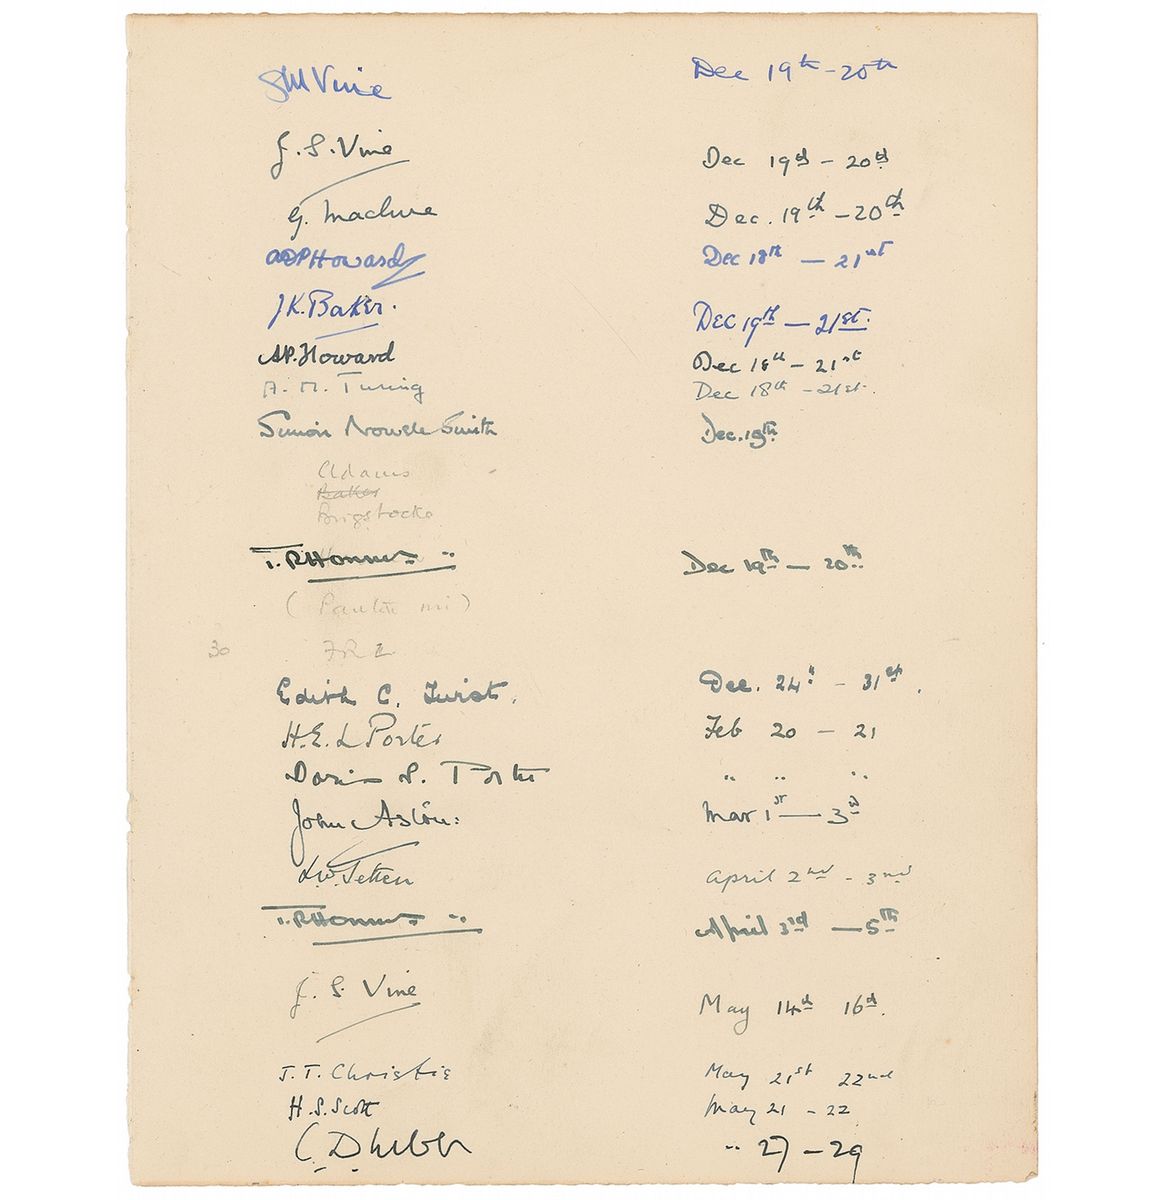 GM Vine Dec 19th - 20th
J. S. Vine Dec 19th - 20th
G. Maclure Dec. 19th - 20th
Howard Dec 18th - 21st
J K. Baker. Dec 19th - 21st.
A.P. Howard Dec 18th - 21st
A. M. Turing Dec 18th - 21st.
Simon Nowell Smith Dec. 19th
Adams
Baker
Brigstocke
T. R Dec 19th - 20th
30
Edith C. Dec. 24th - 31st.
H. E. L Porter Feb 20 - 21
Doris S. Porter " " "
John Aston: Mar 1st - 3rd
April 2nd - 3rd
T. R April 3rd - 5th
J. S. Vine May 14th 16th.
J. T. Christie May 21st 22nd
H. S. Scott May 21 - 22
C. D " 27 - 29